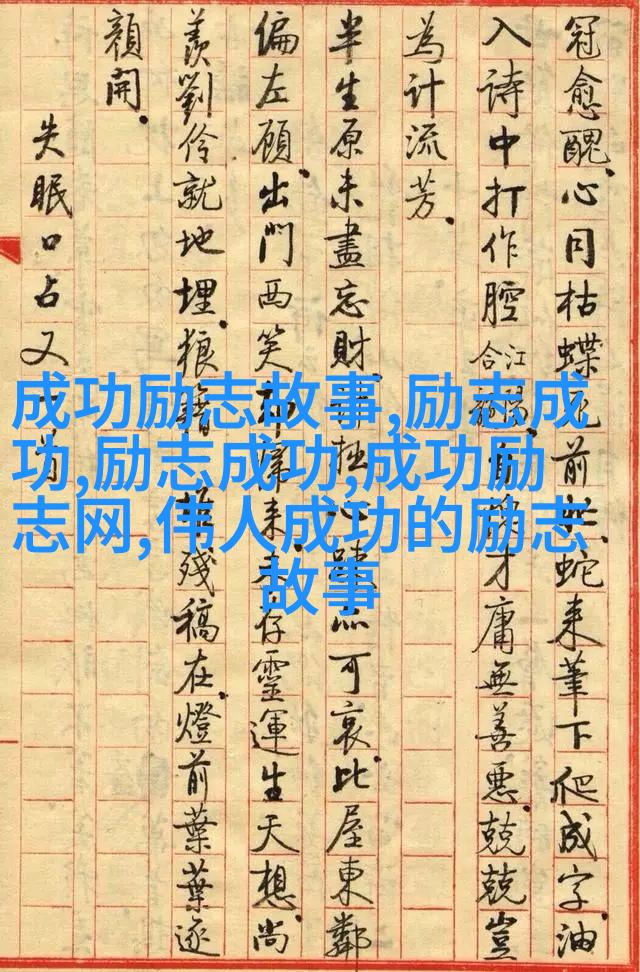 冠愈醜。心同枯蝶前蛇来筆下爬成字。油
入诗中打作腔。合江才庸無善惡。兢兢豈
為计流芳。
半生原未盡忘財。拙可哀。比屋東鄰
偏左顧。出門西笑来存靈運生天想。尚
羨劉伶就地埋。狼籍殘稿在。燈前葉葉逐
顏開。
失眠口占又一首
成功励志故事,励志成
功,励志成功,成功励
志网,伟人成功的励志
故事